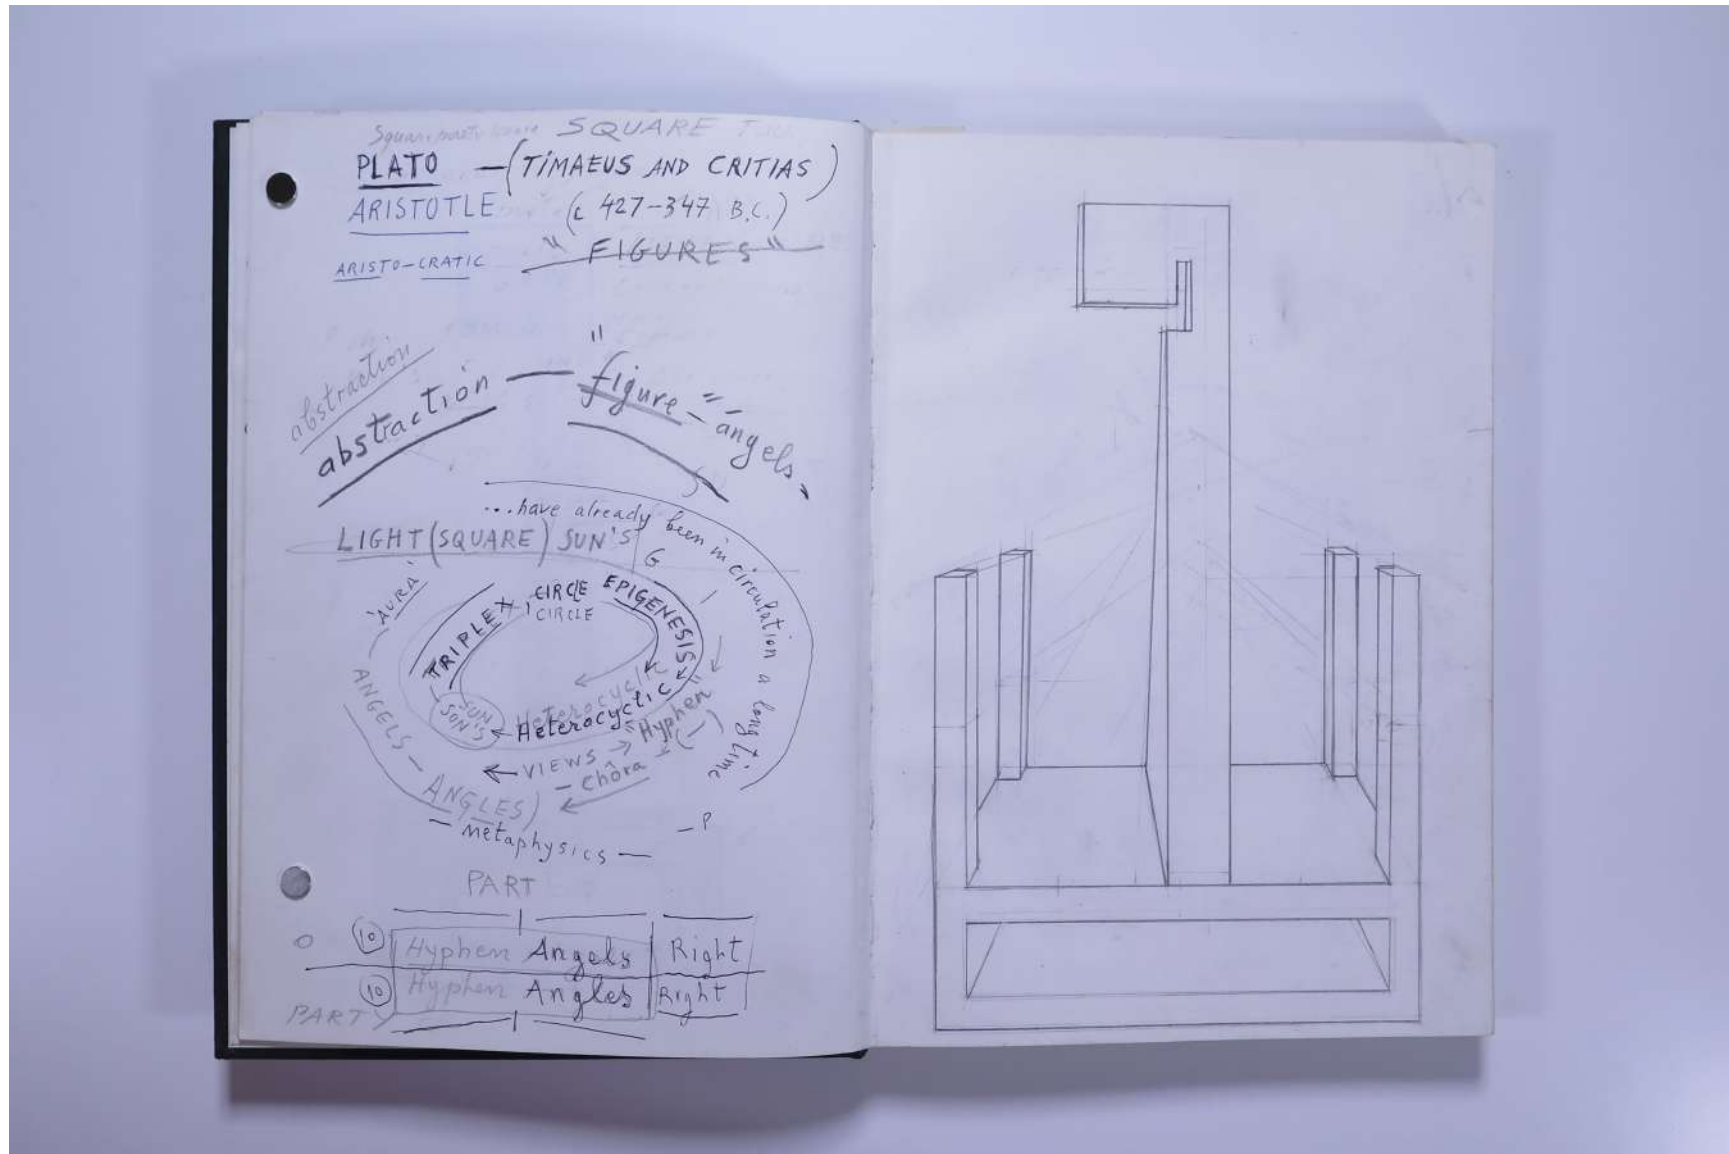 SQUARE
PLATO — (TIMAEUS AND CRITIAS)
ARISTOTLE (c 427-347 B.C.)
ARISTO-CRATIC "FIGURES"
abstraction
abstraction — "figure-" "angels"
...have already been in circulation a long time
LIGHT (SQUARE) SUN'S
G
'AURA'
TRIPLEX CIRCLE EPIGENESIS
CIRCLE
SUN
SON'S
Heterocyclic
Heterocyclic
"Hyphen"
(-)
VIEWS
- Chôra
ANGELS -
ANGLES)
- metaphysics -
- P
PART
O 10 Hyphen Angels Right
10 Hyphen Angles Right
PART